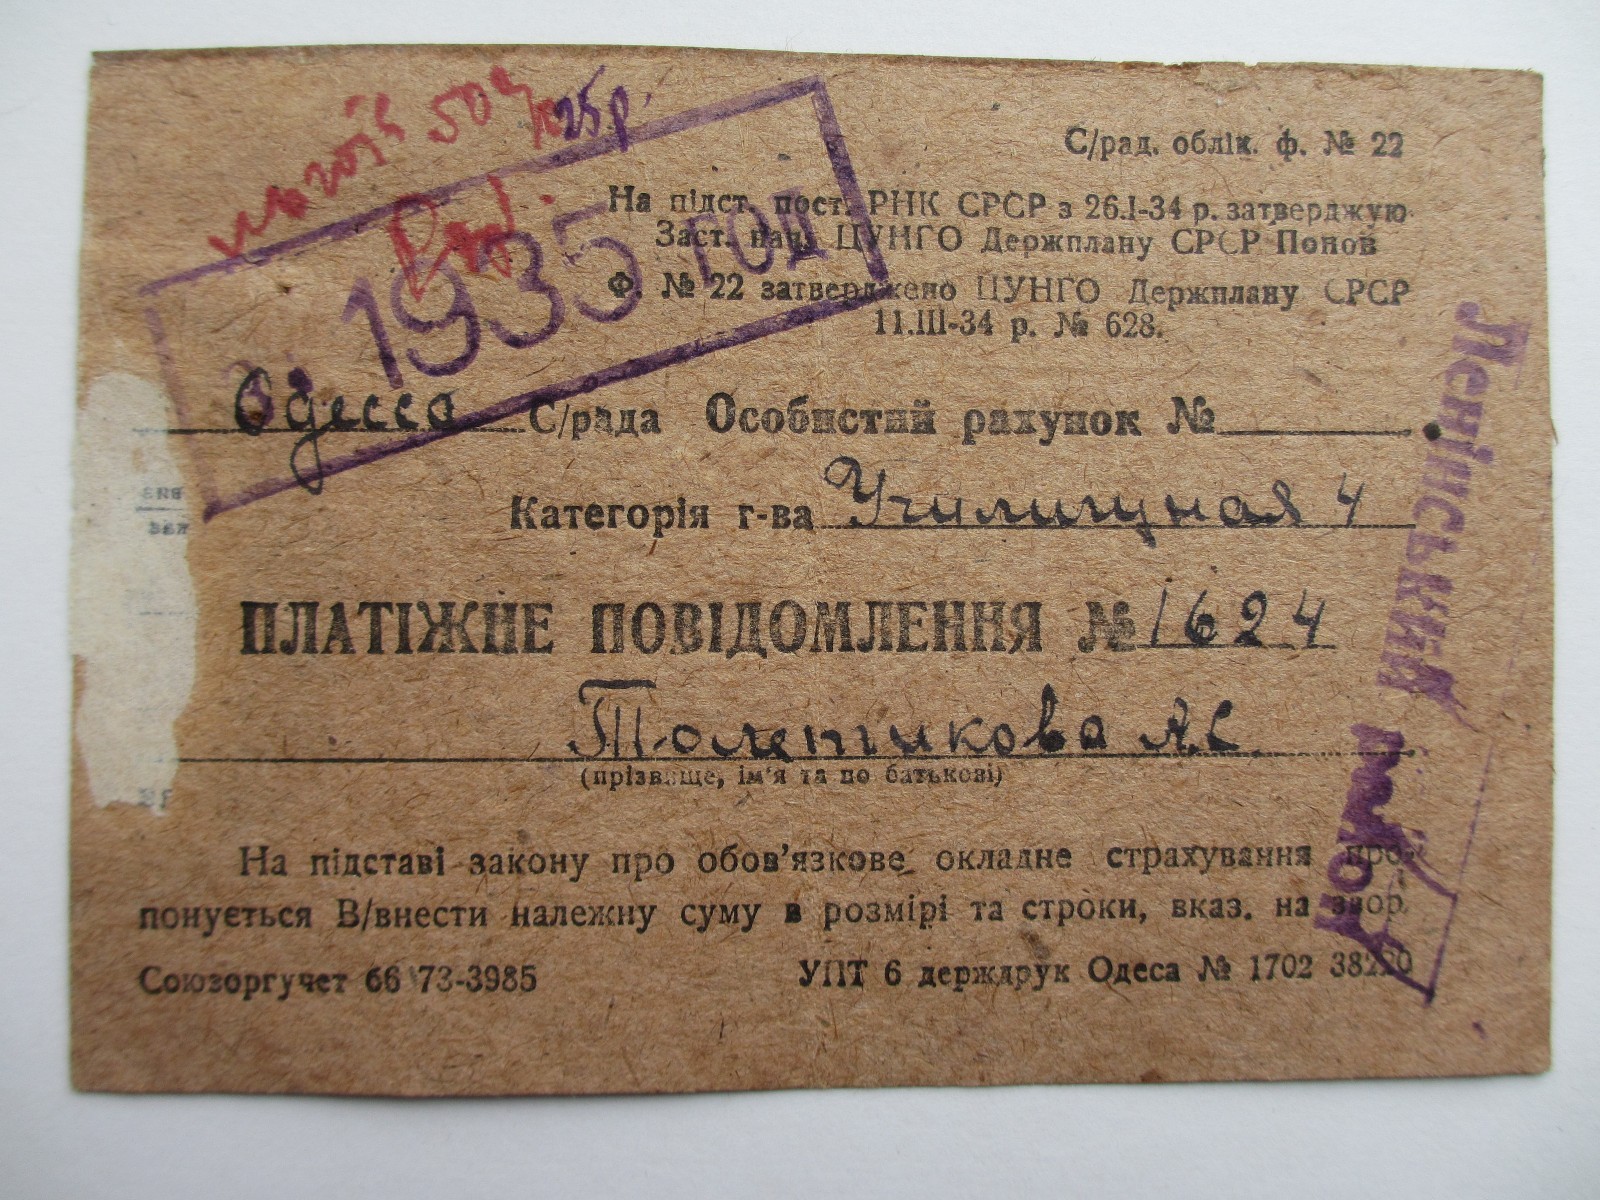 50% 25 р.
С/рад. облік. ф. № 22
На підст. пост. РНК СРСР з 26.I-34 р. затверджую
Заст. нач. ЦУНГО Держплану СРСР Попов
Ф. № 22 затверджено ЦУНГО Держплану СРСР
11.III-34 р. № 628.
1935 ГОД
Одесса С/рада Особистий рахунок №
Категорія г-ва Училищная 4
ПЛАТІЖНЕ ПОВІДОМЛЕННЯ № 1624
А.С.
(прізвище, ім'я та по батькові)
На підставі закону про обов'язкове окладне страхування про-
понується В/внести належну суму в розмірі та строки, вказ. на звор.
Союзоргучет 66 73-3985 УПТ 6 держдрук Одеса № 1702 38220
Ленінський район